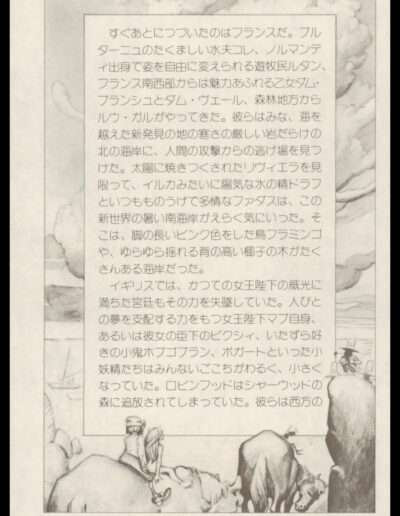 すぐあとにつづいたのはフランスだ。ブル
ターニュのたくましい水夫コレ、ノルマンデ
ィ出身で姿を自由に変えられる遊牧民ルタン、
フランス南西部からは魅力あふれる乙女ダム・
ブランシュとダム・ヴェール、森林地方から
ルウ・ガルがやってきた。彼らはみな、海を
越えた新発見の地の寒さの厳しい岩だらけの
北の海岸に、人間の攻撃からの逃げ場を見つ
けた。太陽に焼きつくされたリヴィエラを見
限って、イルカみたいに陽気な水の精ドラフ
といつもものうげで多情なファダスは、この
新世界の暑い南海岸がえらく気にいった。そ
こは、脚の長いピンク色をした鳥フラミンゴ
や、ゆらゆら揺れる背の高い椰子の木がたく
さんある海岸だった。
イギリスでは、かつての女王陛下の威光に
満ちた宮廷もその力を失墜していた。人びと
の夢を支配する力をもつ女王陛下マブ自身、
あるいは彼女の臣下のピクシィ、いたずら好
きの小鬼ホブゴブラン、ボガートといった小
妖精たちはみんないごこちがわるく、小さく
なっていた。ロビンフッドはシャーウッドの
森に追放されてしまっていた。彼らは西方の